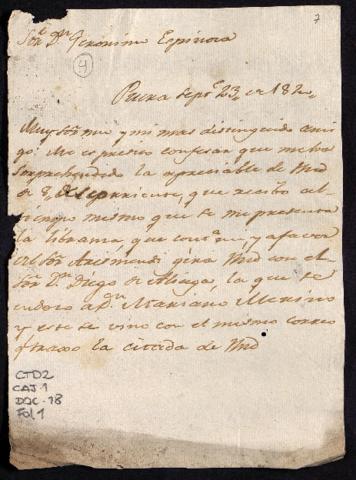 7
Sor Dn Geronimo Espinosa
4
Piura Sepe 23,, de 182,,
Muy Sor mio y mi mas distinguido ami
go: Me es presiso confesar que me ha
sorprehendido la apreciable de Vmd
de 8,, del corriente, que recibo al
tiempo mismo que se me presenta
la libranza, que contra mi, y a favor
del Sor Arismendi gira Vmd con el
Sor Dn Diego de Aliaga, la que se
endoso a Dn Mariano Merino
y este se vino con el mismo correo
q traxo la citada de Vmd
CTD2
CAJ-1
DOC-18
Fol,1